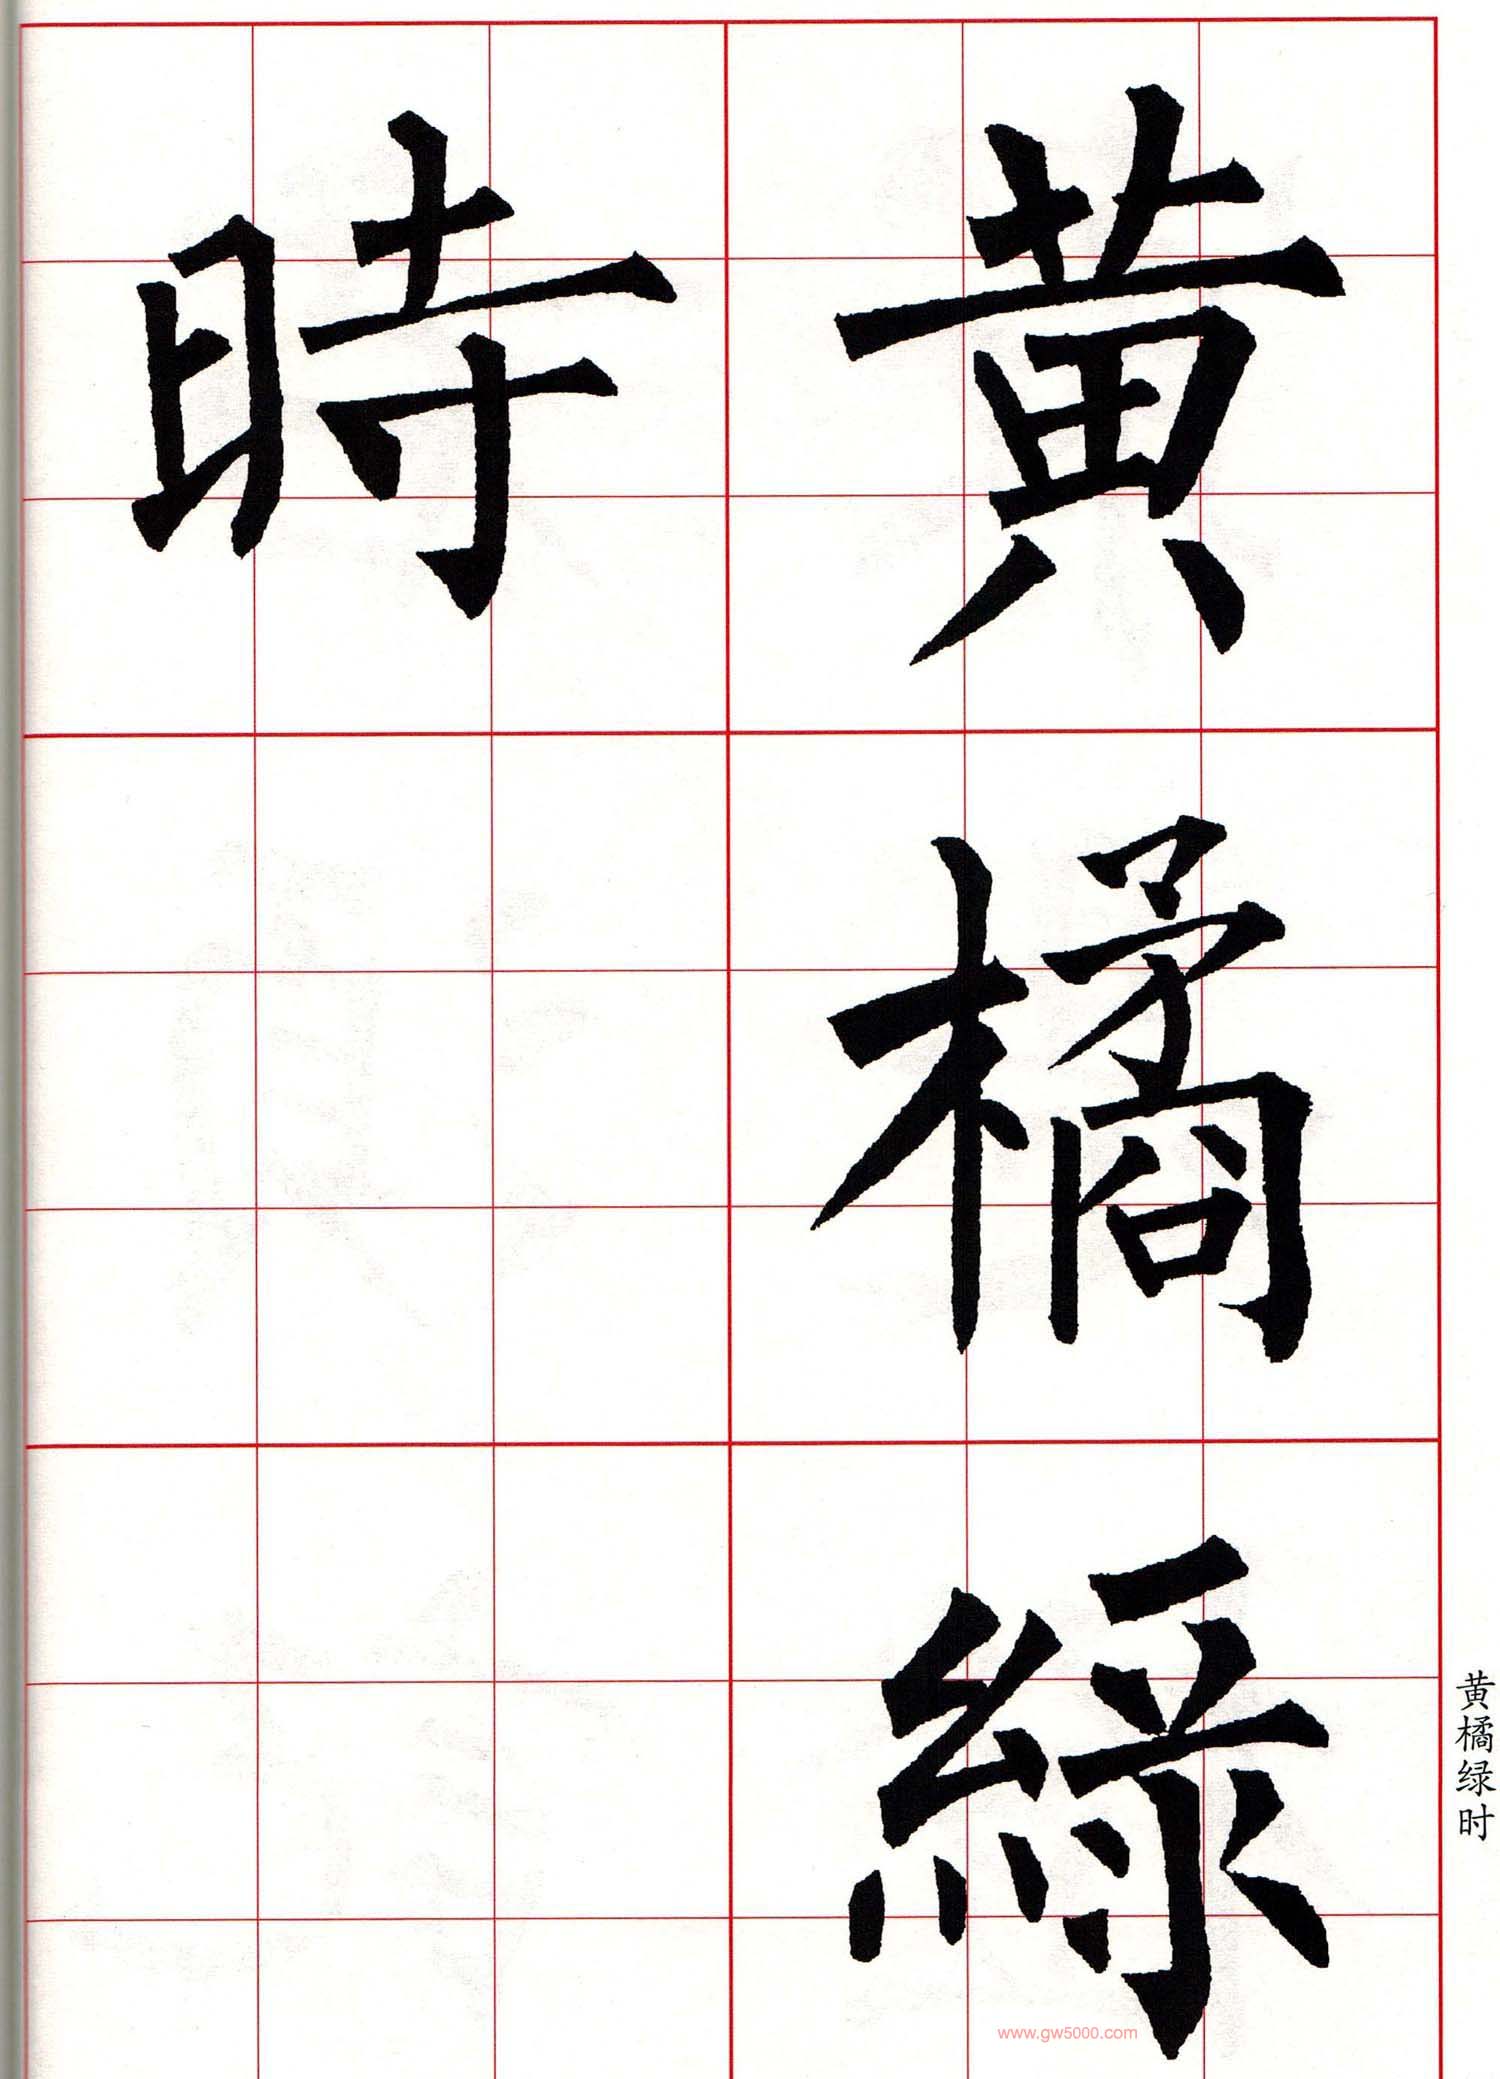 黄橘緑
時
黄橘绿时
www.gw5000.com